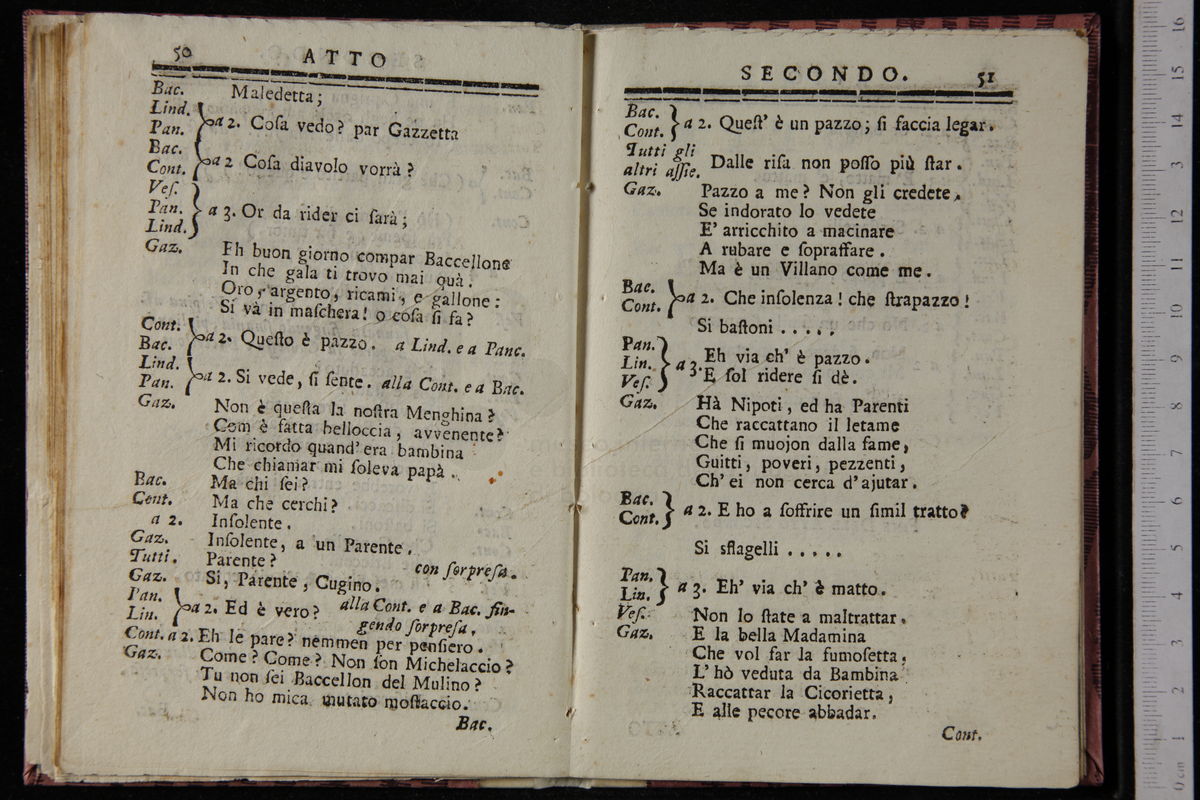 50 ATTO
Bac. Maledetta;
Lind.
Pan. } a 2. Coſa vedo? par Gazzetta
Bac.
Cont. } a 2 Coſa diavolo vorrà?
Veſ.
Pan. } a 3. Or da rider ci ſarà;
Lind.
Gaz. Eh buon giorno compar Baccellone
In che gala ti trovo mai quà.
Oro, argento, ricami, e gallone:
Si và in maſchera! o coſa ſi fa?
Cont.
Bac. } a 2. Queſto è pazzo. a Lind. e a Panc.
Lind.
Pan. } a 2. Si vede, ſi ſente. alla Cont. e a Bac.
Gaz. Non è queſta la noſtra Menghina?
Com è fatta belloccia, avvenente?
Mi ricordo quand' era bambina
Che chiamar mi ſoleva papà.
Bac. Ma chi ſei?
Cent. Ma che cerchi?
a 2. Inſolente.
Gaz. Inſolente, a un Parente.
Tutti. Parente? con ſorpreſa.
Gaz. Si, Parente, Cugino.
Pan.
Lin. } a 2. Ed è vero? alla Cont. e a Bac. fin-
gendo ſorpreſa.
Cont. a 2. Eh le pare? nemmen per penſiero.
Gaz. Come? Come? Non ſon Michelaccio?
Tu non ſei Baccellon del Mulino?
Non ho mica mutato moſtaccio.
Bac.
SECONDO. 51
Bac.
Cont. } a 2. Queſt' è un pazzo; ſi faccia legar.
Tutti gli
altri aſſie. Dalle riſa non poſſo più ſtar.
Gaz. Pazzo a me? Non gli credete,
Se indorato lo vedete
E' arricchito a macinare
A rubare e ſopraffare.
Ma è un Villano come me.
Bac.
Cont. } a 2. Che inſolenza! che ſtrapazzo!
Si baſtoni . . . . .
Pan.
Lin. } a 3. Eh via ch' è pazzo.
Veſ. E ſol ridere ſi dè.
Gaz. Hà Nipoti, ed ha Parenti
Che raccattano il letame
Che ſi muojon dalla fame,
Guitti, poveri, pezzenti,
Ch' ei non cerca d'ajutar.
Bac.
Cont. } a 2. E ho a ſoffrire un ſimil tratto?
Si sflagelli . . . . .
Pan.
Lin. } a 3. Eh' via ch' è matto.
Veſ. Non lo ſtate a maltrattar.
Gaz. E la bella Madamina
Che vol far la fumoſetta,
L' hò veduta da Bambina
Raccattar la Cicorietta,
E alle pecore abbadar.
Cont.
0 cm 1 2 3 4 5 6 7 8 9 10 11 12 13 14 15 16